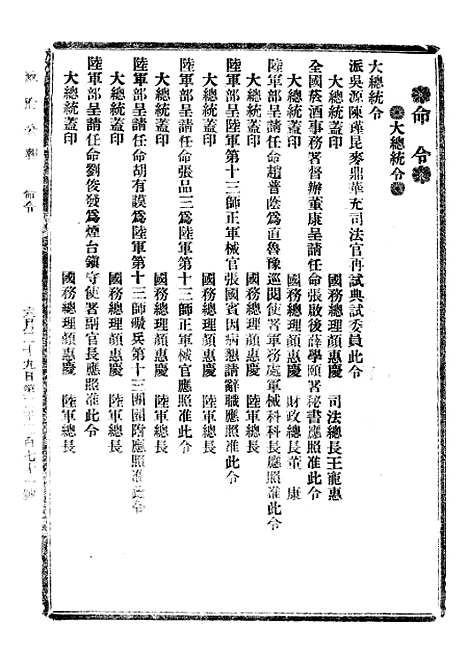 命令
大總統令
大總統令
派吳源陳瑾昆麥鼎華充司法官再試典試委員此令
大總統蓋印 國務總理顏惠慶 司法總長王寵惠
全國菸酒事務署督辦董康呈請任命張啟後薛學頤署秘書應照准此令
大總統蓋印 國務總理顏惠慶 財政總長董康
陸軍部呈請任命趙普蔭為直魯豫巡閱使署軍務處軍械科科長應照准此令
大總統蓋印 國務總理顏惠慶 陸軍總長
陸軍部呈陸軍第十三師正軍械官張國賓因病懇請辭職應照准此令
大總統蓋印 國務總理顏惠慶 陸軍總長
陸軍部呈請任命張品三為陸軍第十三師正軍械官應照准此令
大總統蓋印 國務總理顏惠慶 陸軍總長
陸軍部呈請任命胡有謨為陸軍第十三師礮兵第十三團團附應照准此令
大總統蓋印 國務總理顏惠慶 陸軍總長
陸軍部呈請任命劉俊發為煙台鎮守使署副官長應照准此令
大總統蓋印 國務總理顏惠慶 陸軍總長
政府公報 命令 六月二十九日第二千二百七十一號